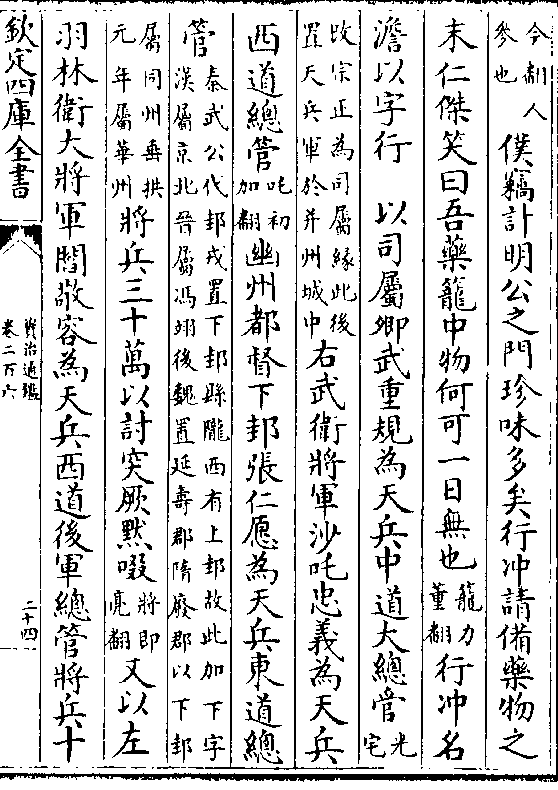 今翻人
參也
僕竊計明公之門珍味多矣行沖請備藥物之
末仁傑笑曰吾藥籠中物何可一日無也
籠力
董翻
行沖名
澹以字行　以司屬卿武重規為天兵中道大總管
光
宅
改宗正為司屬緣此後
置天兵軍於并州城中
右武衛將軍沙吒忠義為天兵
西道總管
吒初
加翻
幽州都督下邽張仁愿為天兵東道總
管
秦武公伐邽戎置下邽縣隴西有上邽故此加下字
漢屬京兆晉屬馮翊後魏置延壽郡隋廢郡以下邽
屬同州垂拱
元年屬華州
將兵三十萬以討突厥默啜
將即
亮翻
又以左
羽林衛大將軍閻敬容為天兵西道後軍總管將兵十
欽定四庫全書
資治通鑑
卷二百六
二十四